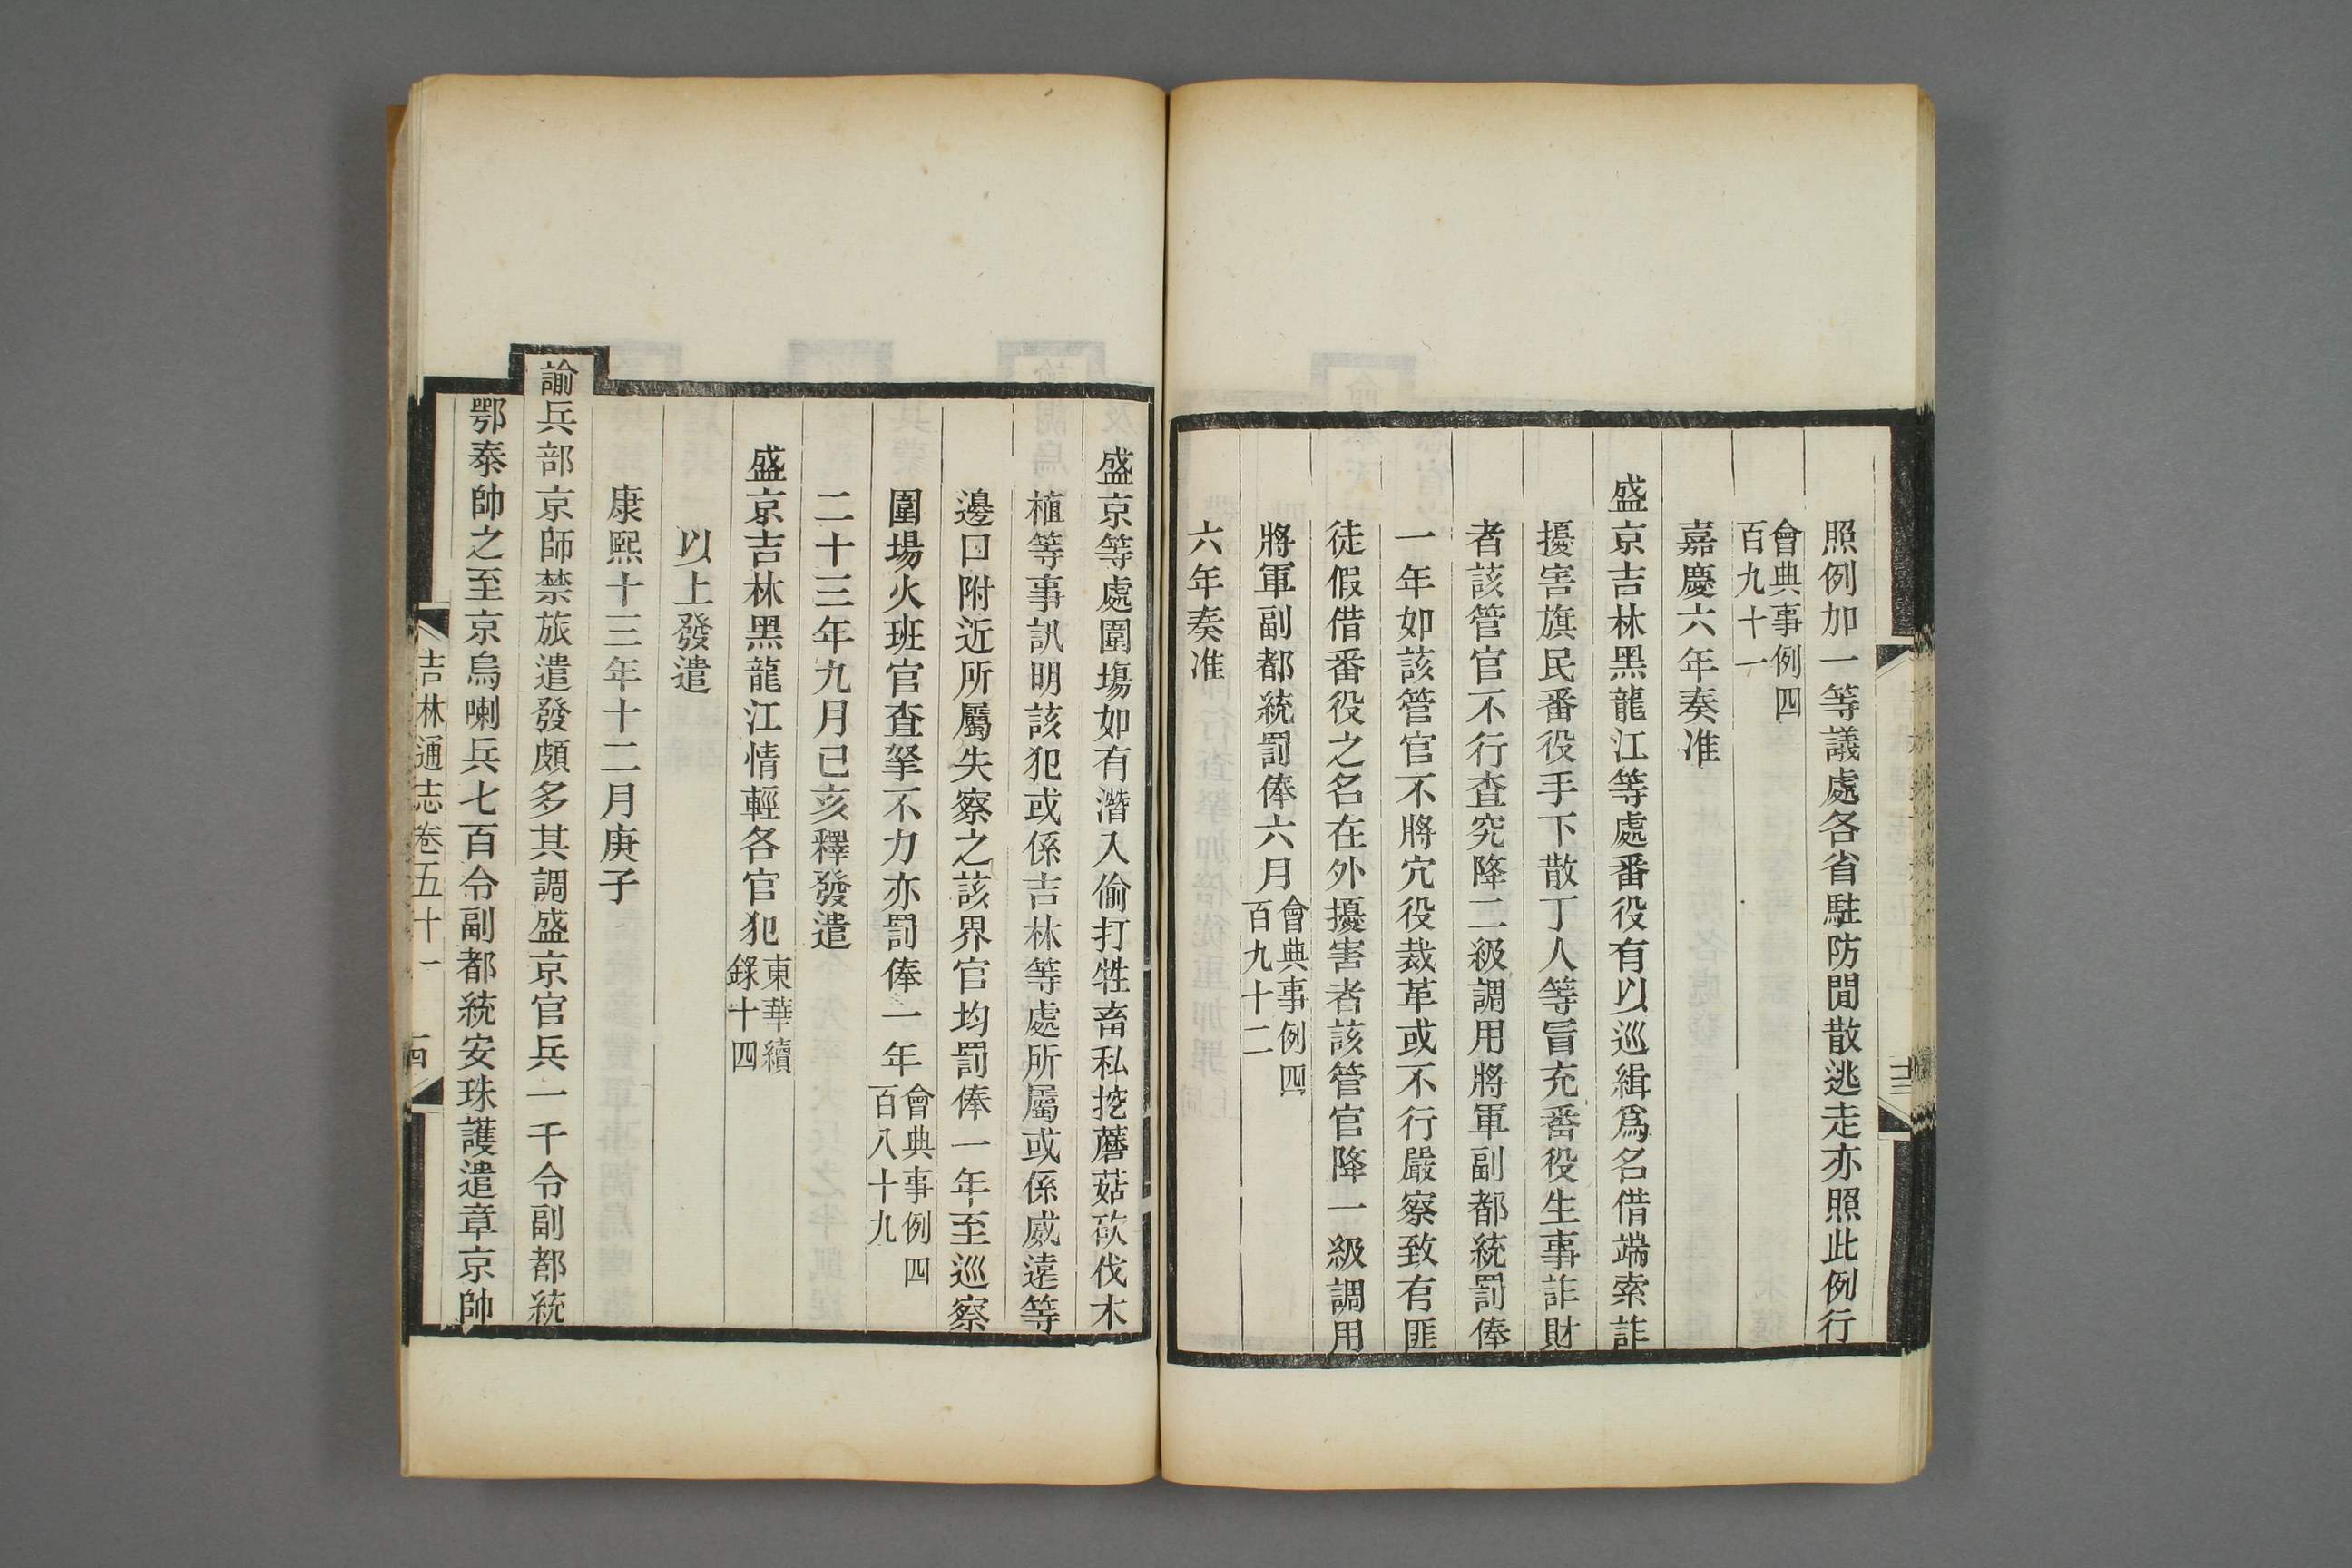 照例加一等議處各省駐防閒散逃走亦照此例行
會典事例四
百九十一
嘉慶六年奏准
盛京吉林黑龍江等處番役有以巡緝爲名借端索詐
擾害旗民番役手下散丁人等冒充番役生事詐財
者該管官不行查究降二級調用將軍副都統罰俸
一年如該管官不將冗役裁革或不行嚴察致有匪
徒假借番役之名在外擾害者該管官降一級調用
將軍副都統罰俸六月會典事例四
百九十二
六年奏准
盛京等處圍場如有潛入偷打牲畜私挖蘑菇砍伐木
植等事訊明該犯或係吉林等處所屬或係威遠等
邊口附近所屬失察之該界官均罰俸一年至巡察
圍場火班官查拏不力亦罰俸一年會典事例四
百八十九
二十三年九月己亥釋發遣
盛京吉林黑龍江情輕各官犯東華續
錄十四
以上發遣
康熙十三年十二月庚子
諭兵部京師禁旅遣發頗多其調盛京官兵一千令副都統
鄂泰帥之至京烏喇兵七百令副都統安珠護遣章京帥
吉林通志卷五十一 十四